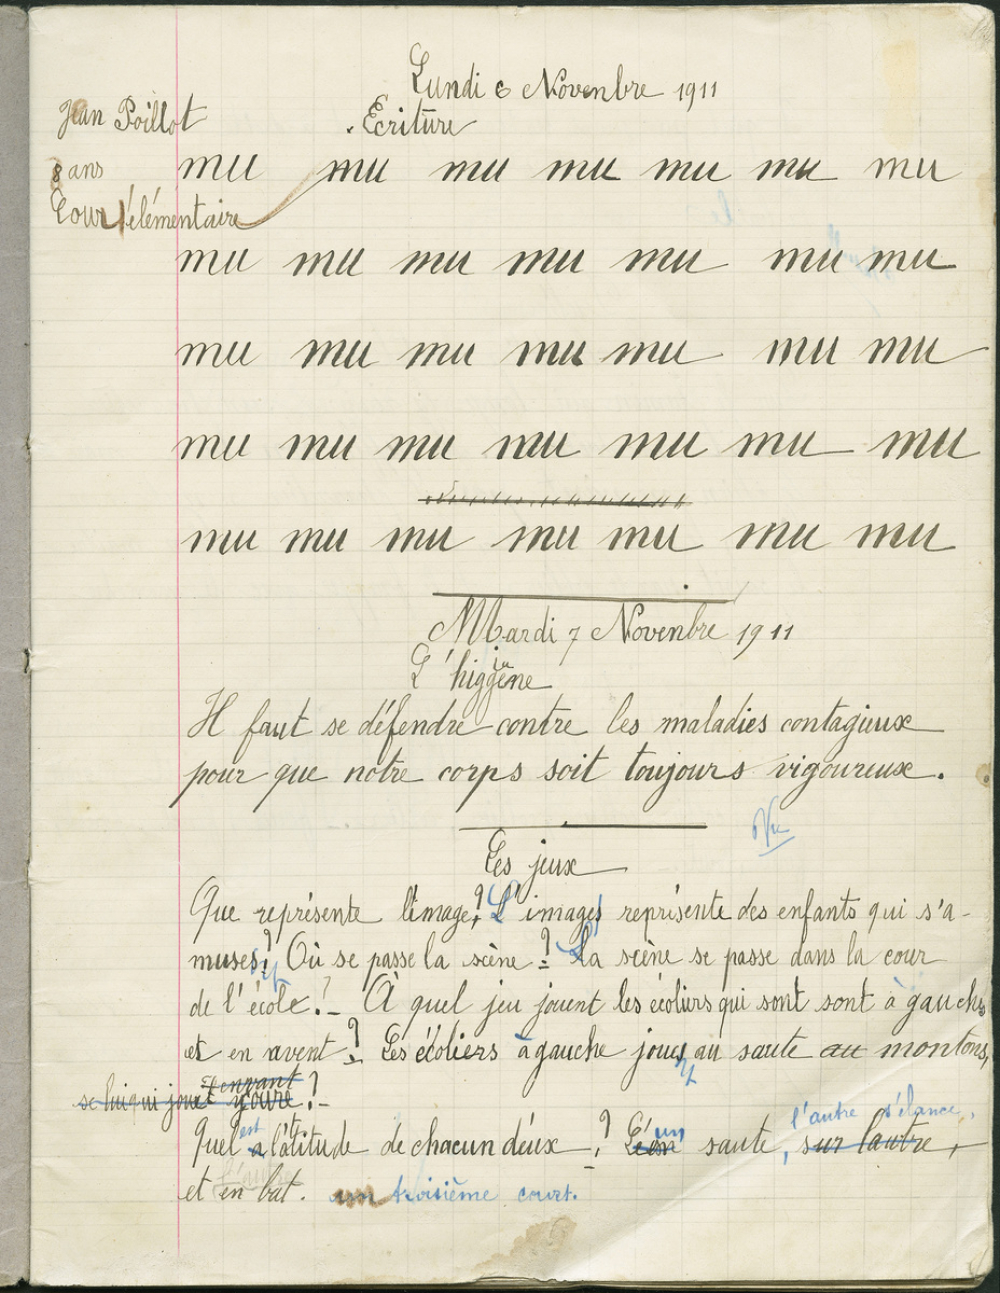 Lundi 6 Novenbre 1911
Jean Poillot
Ecriture
8 ans
mu mu mu mu mu mu mu
Cour élémentaire
mu mu mu mu mu mu mu
mu mu mu mu mu mu mu
mu mu mu mu mu mu mu
mu mu mu mu mu mu mu
Mardi 7 Novenbre 1911
L'higgiène
Il faut se défendre contre les maladies contagieux
pour que notre corps soit toujours vigoureux.
Vu
Les jeux
Que représente l'image? L'images représente des enfants qui s'a-
muses? Où se passe la scène? La scène se passe dans la cour
de l'école? - À quel jeu jouent les écoliers qui sont sont à gauche
et en avent? Les écoliers à gauche joues au saute au montons,
en avant
se lui qui joue
l'autre s'élance,
est un
Quel a l'atitude de chacun déux? saute, sur l'autre,
et en bat. un troisième court.